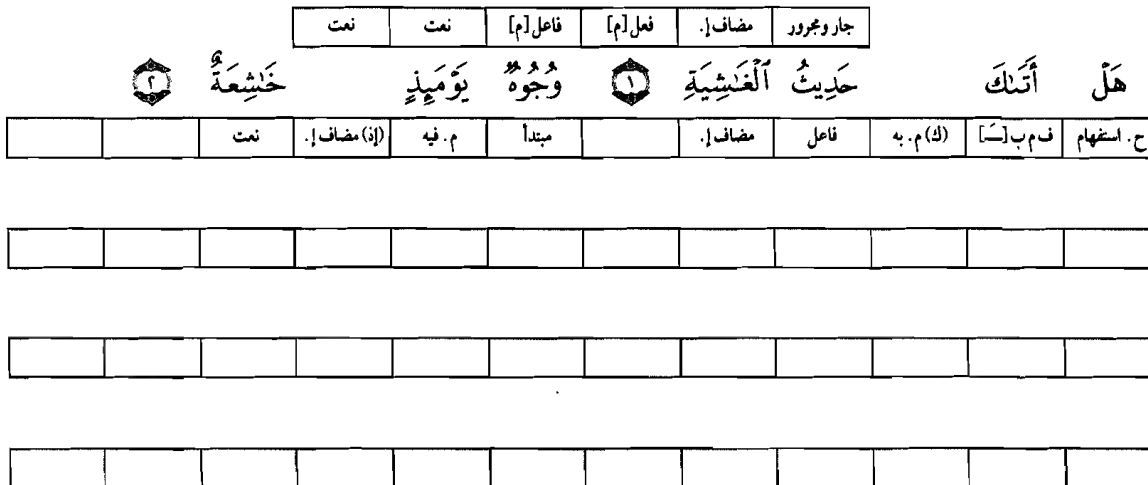 جار ومجرور مضاف إ. فعل [م] فاعل [م] نعت نعت
هَلْ أَتَىٰكَ حَدِيثُ ٱلْغَـٰشِيَةِ ١ وُجُوهٌ يَوْمَئِذٍ خَـٰشِعَةٌ ٢
ح. استفهام ف م ب [ــَ] (ك) م. به فاعل مضاف إ. مبتدأ م. فيه (إذ) مضاف إ. نعت